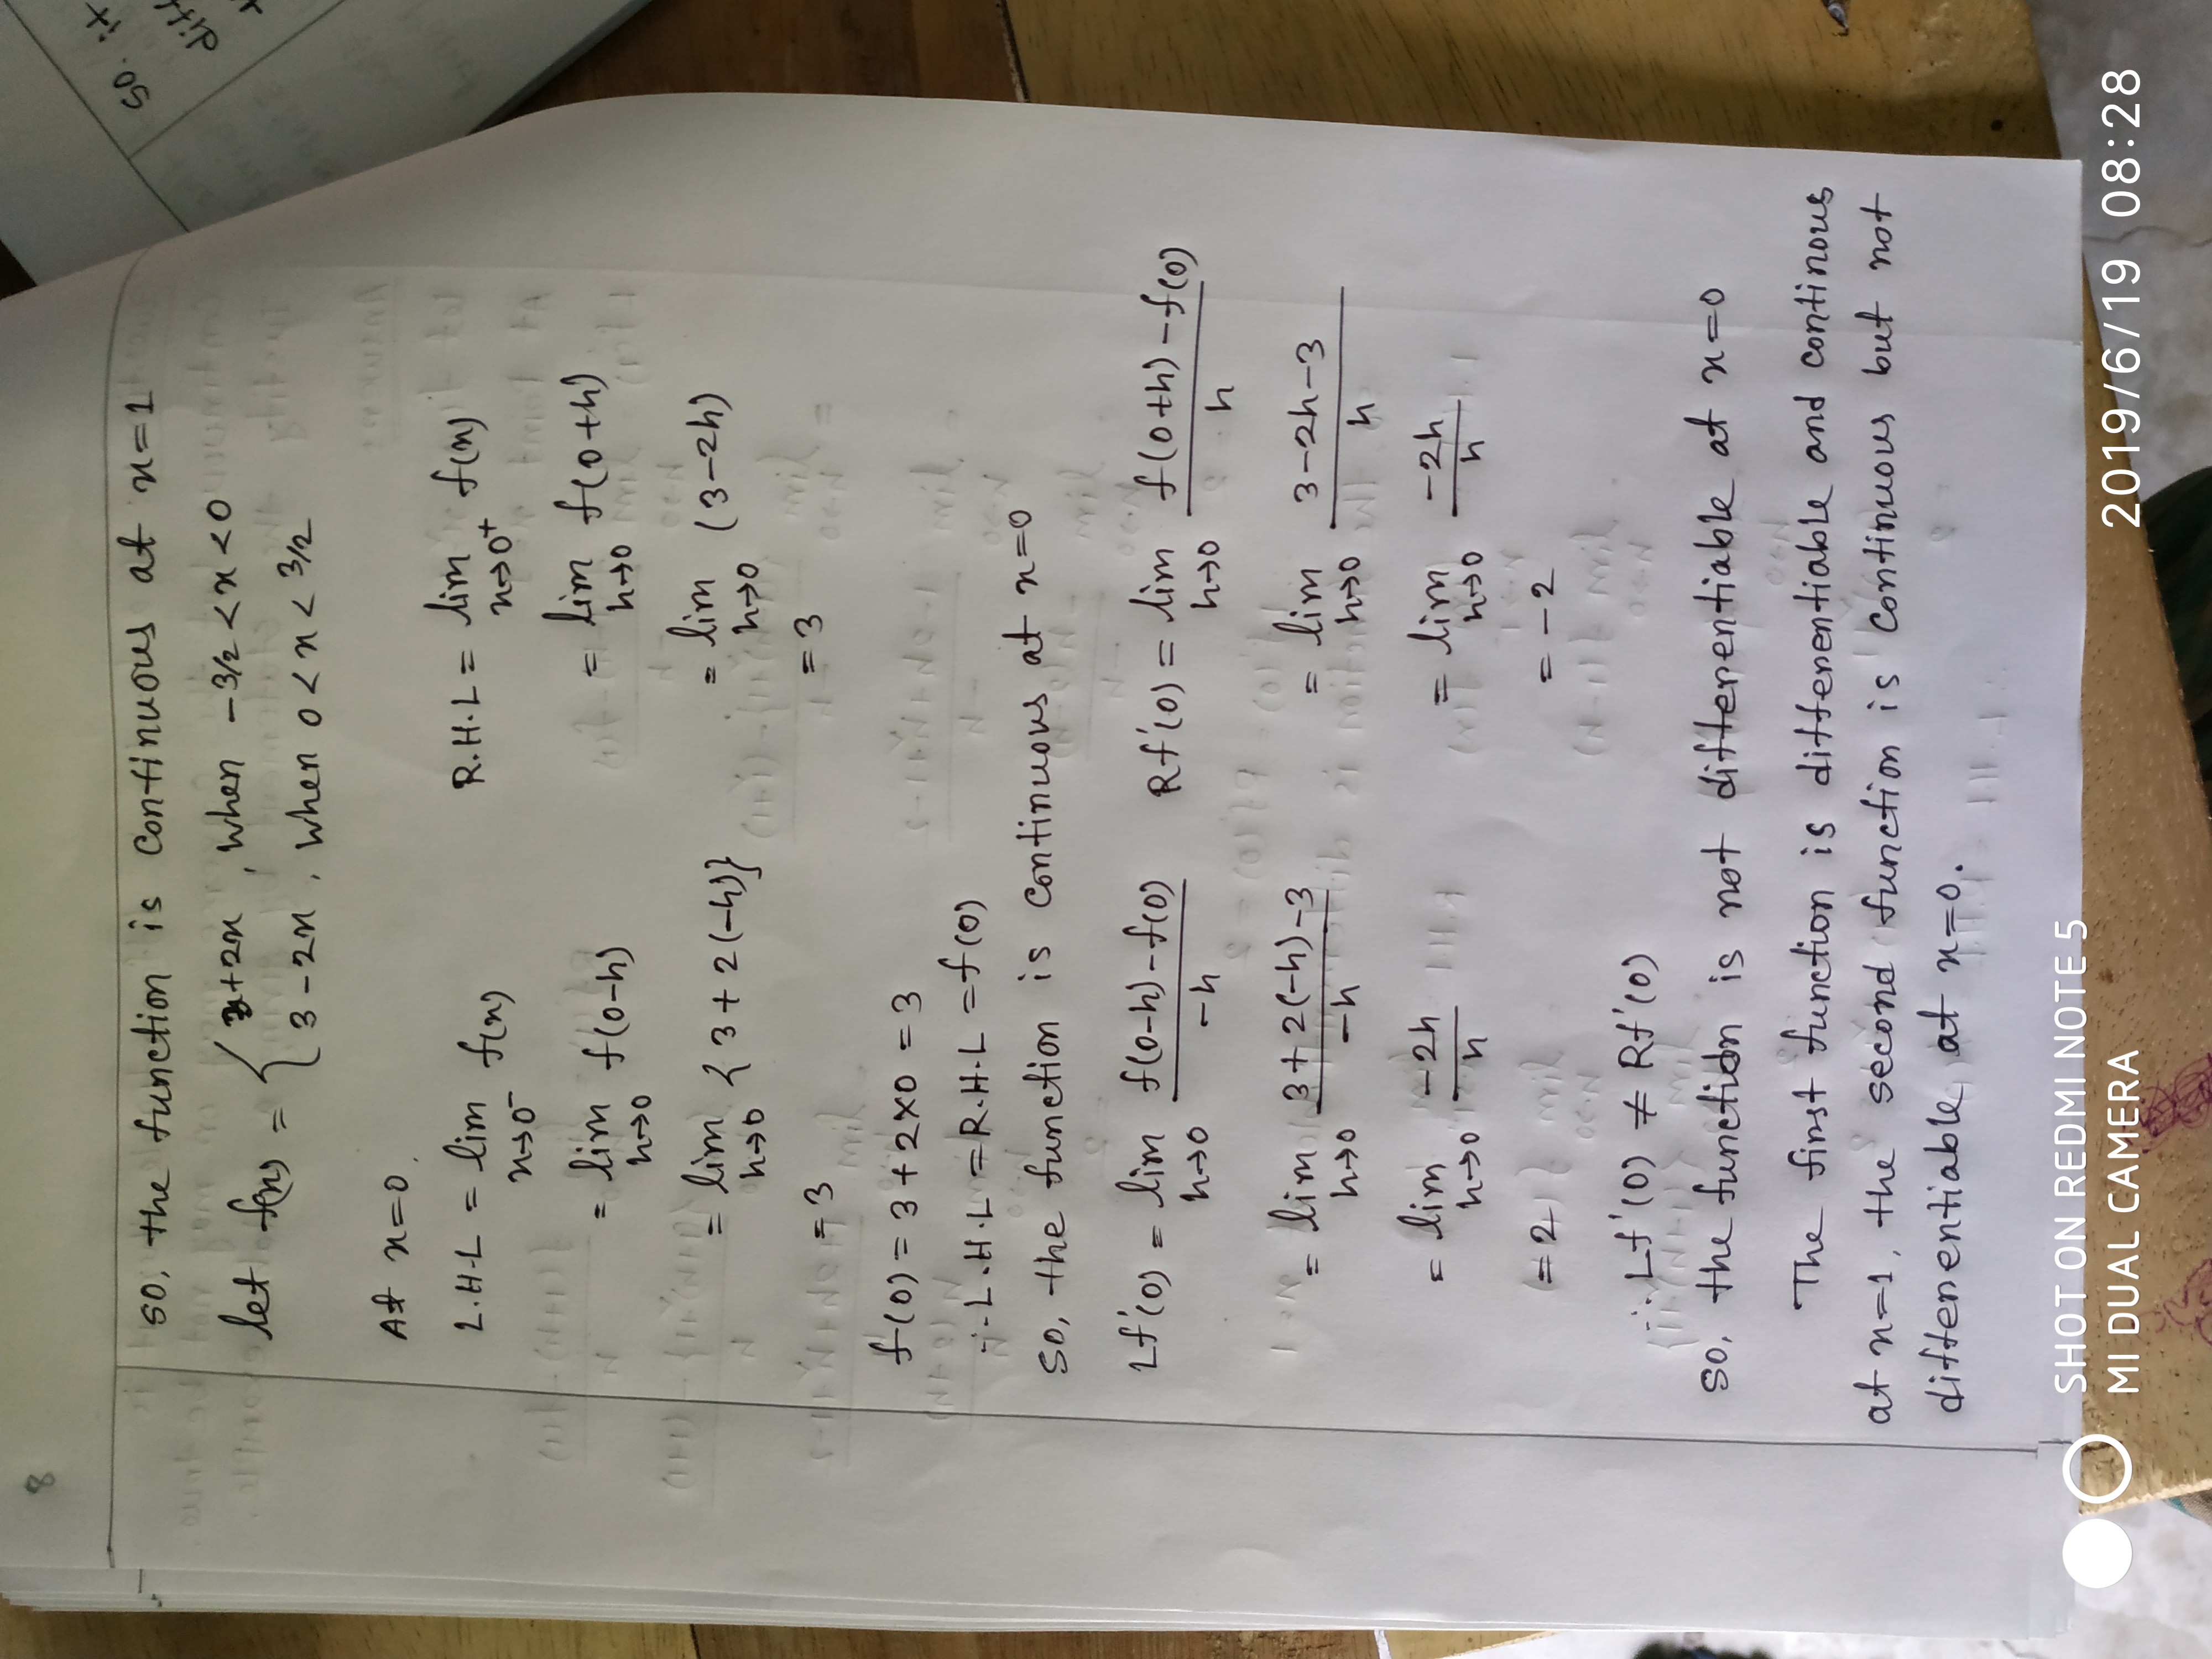 8
so, the function is continuous at x=1
let f(x) = { 3+2x , when -3/2 < x < 0
3-2x , when 0 < x < 3/2
At x=0,
L.H.L = lim x→0⁻ f(x)
= lim h→0 f(0-h)
= lim h→0 {3+2(-h)}
= 3
R.H.L = lim x→0⁺ f(x)
= lim h→0 f(0+h)
= lim h→0 (3-2h)
= 3
f(0) = 3+2×0 = 3
∴ L.H.L = R.H.L = f(0)
so, the function is continuous at x=0
Lf'(0) = lim h→0 f(0-h)-f(0) / -h
= lim h→0 3+2(-h)-3 / -h
= lim h→0 -2h / h
= 2
Rf'(0) = lim h→0 f(0+h)-f(0) / h
= lim h→0 3-2h-3 / h
= lim h→0 -2h / h
= -2
∴ Lf'(0) ≠ Rf'(0)
so, the function is not differentiable at x=0
The first function is differentiable and continous
at x=1, the second function is continuous but not
differentiable at x=0.
so. it
SHOT ON REDMI NOTE 5
MI DUAL CAMERA
2019/6/19 08:28